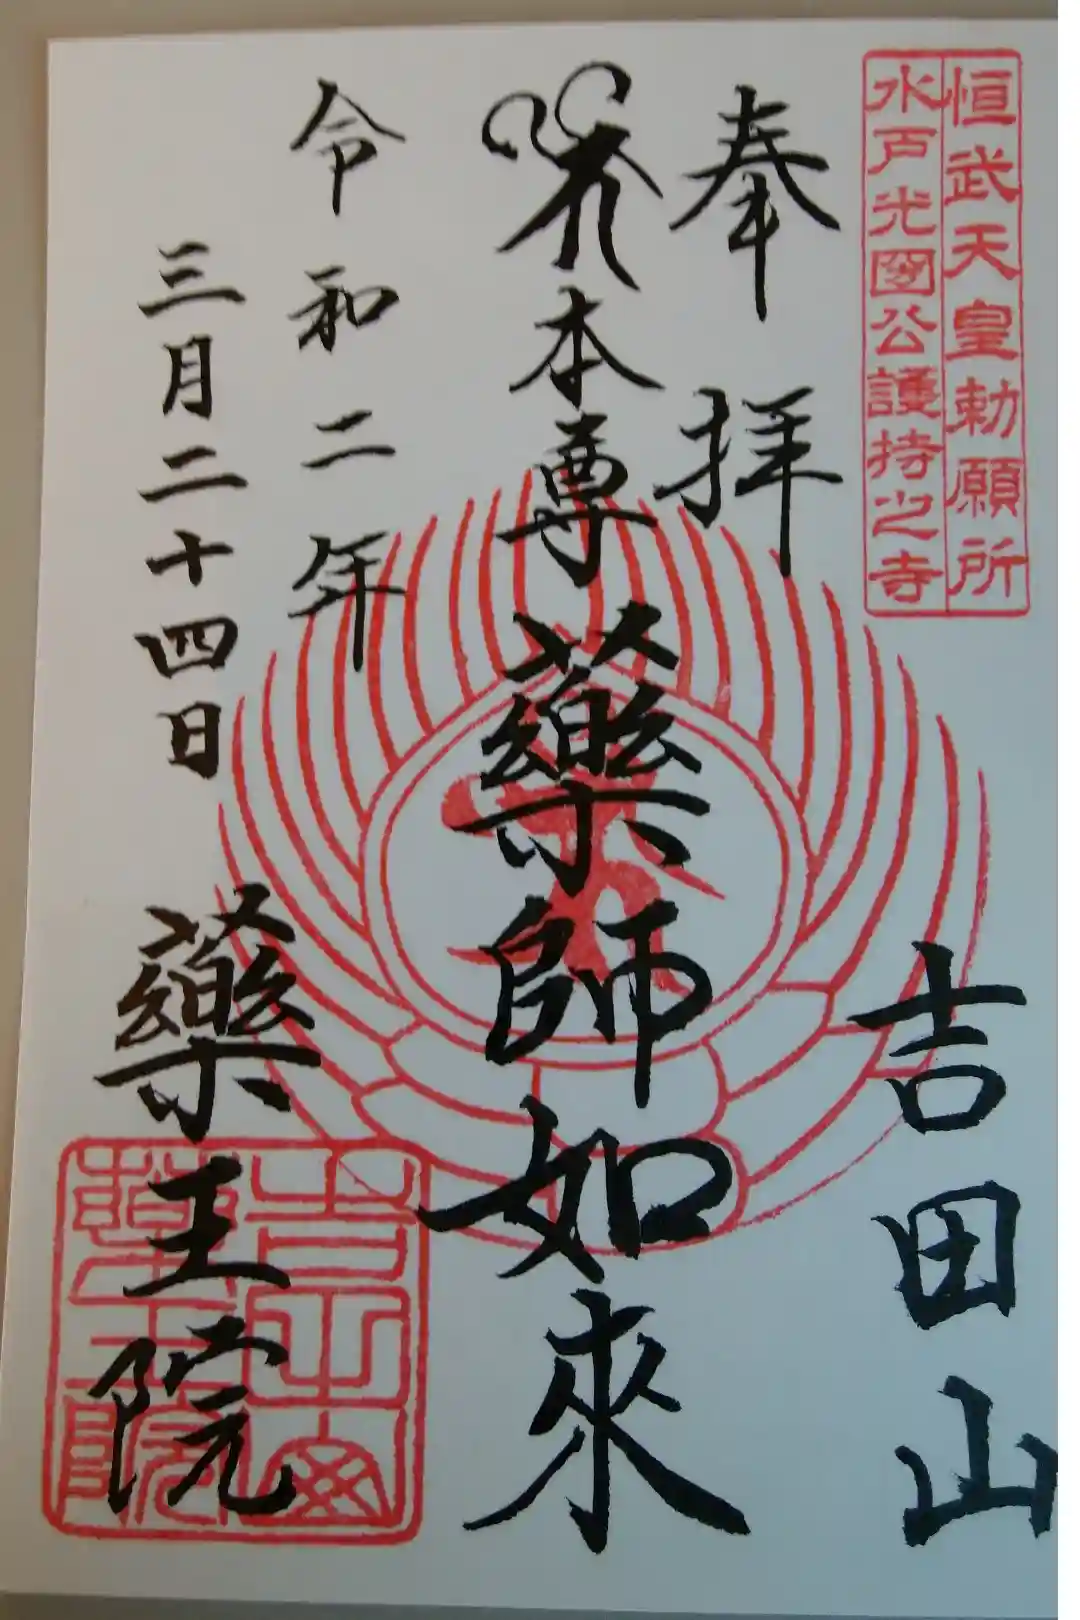 恒武天皇勅願所
水戸光圀公護持之寺
奉拝
吉田山
本尊
薬師如來
令和二年
三月二十四日
薬王院